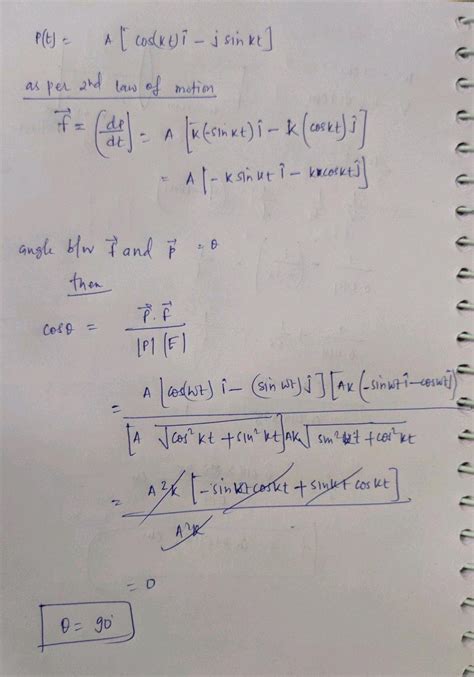 P(t) = A [ cos(kt) î - j sin kt ]
as per 2nd law of motion
f⃗ = (dp/dt) = A [ k(-sin kt) î - k (cos kt) ĵ ]
= A [ -k sin kt î - k cos kt ĵ ]
angle b/w f⃗ and p⃗ = θ
then
cosθ = P⃗ . f⃗
|P| |E|
= A [ cos(wt) î - (sin wt) ĵ ] [ AK (-sin wt î - cos wt ĵ )
[A √cos² kt + sin² kt] AK √ sin² kt + cos² kt
= A²K [ -sin kt cos kt + sin kt cos kt ]
A²K
= 0
θ = 90°